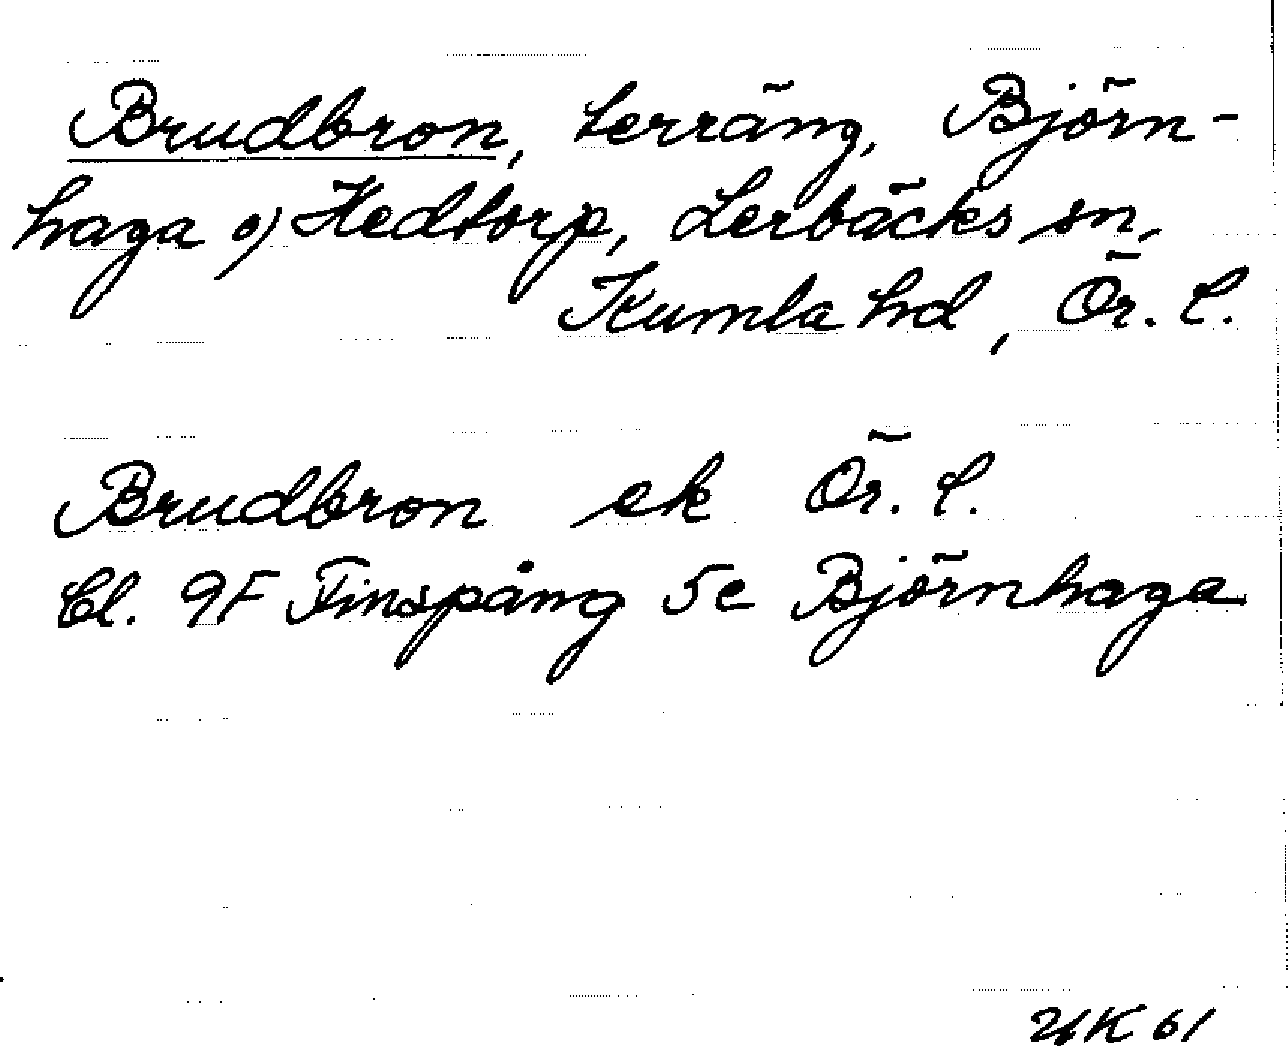 Brudbron, terräng, Björn-
haga o) Hedtorp, Lerbäcks sn,
Kumla hd, Ör. l.
Brudbron ek Ör. l.
Bl. 9F Finspång 5c Björnhaga
61